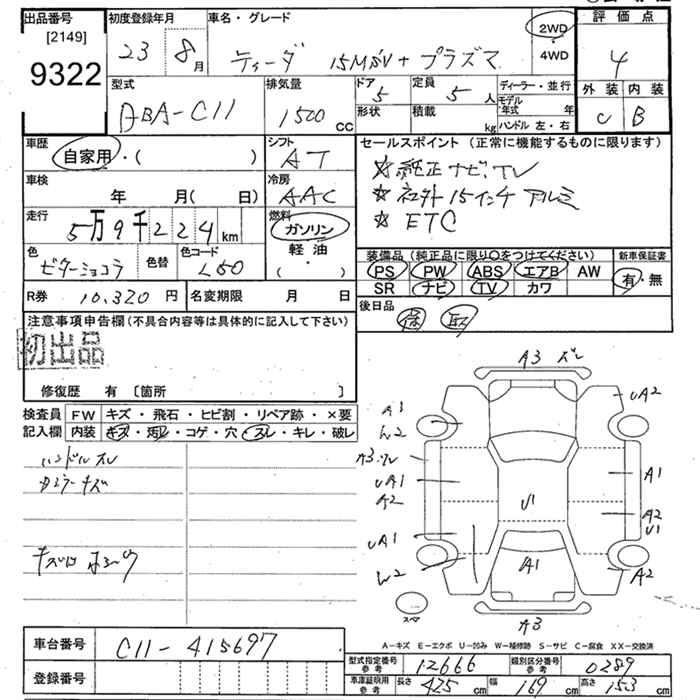 出品番号
[2149]
9322
初度登録年月
23 8月
車名・グレード
ティーダ 15M SV + プラズマ
2WD
・
4WD
評価点
4
外装 内装
C B
型式
DBA-C11
排気量
1500 cc
ドア 5
形状
定員 5 人
積載 kg
ディーラー・並行
モデル年式 年
ハンドル 左・右
車歴
自家用・( )
シフト
AT
車検
年 月( 日)
冷房
AAC
走行
5万9千224km
燃料
ガソリン
軽油
( ・ )
色
ビターショコラ
色替
色コード
L50
R券 10,320円
名変期限 月 日
セールスポイント (正常に機能するものに限ります)
☆純正ナビ、TV
☆社外15インチ アルミ
☆ETC
装備品 (純正品に限り○をつけてください)
新車保証書
PS PW ABS エアB AW
SR ナビ TV カワ
有・無
後日品
保 取
注意事項申告欄(不具合内容等は具体的に記入して下さい)
初出品
修復歴 有 [箇所 ]
検査員 FW キズ・飛石・ヒビ割・リペア跡・×要
記入欄 内装 キズ・汚レ・コゲ・穴・スレ・キレ・破レ
ハンドルスレ
カミラーキズ
A3 ズレ
A1
W2
UA2
A3
UA1
A2
A1
A2
U1
U1
UA1
W2
A1
A2
スペア
A3
A-キズ E-エクボ U-凹み W-補修跡 S-サビ C-腐食 XX-交換済
車台番号 C11-415697
登録番号
型式指定番号 12666
類別区分番号 0289
車庫証明用参考 長さ 425cm 幅 169cm 高さ 153cm